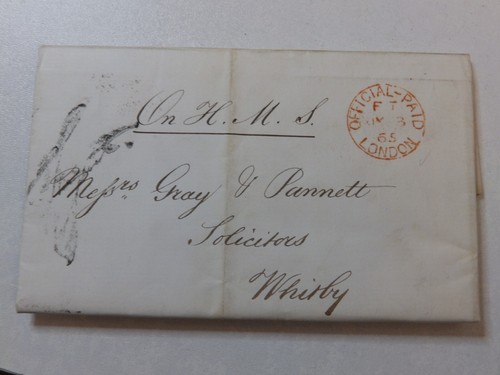 On H. M. S.
OFFICIAL-PAID
LONDON
65
Messrs Gray & Pannett
Solicitors
Whitby